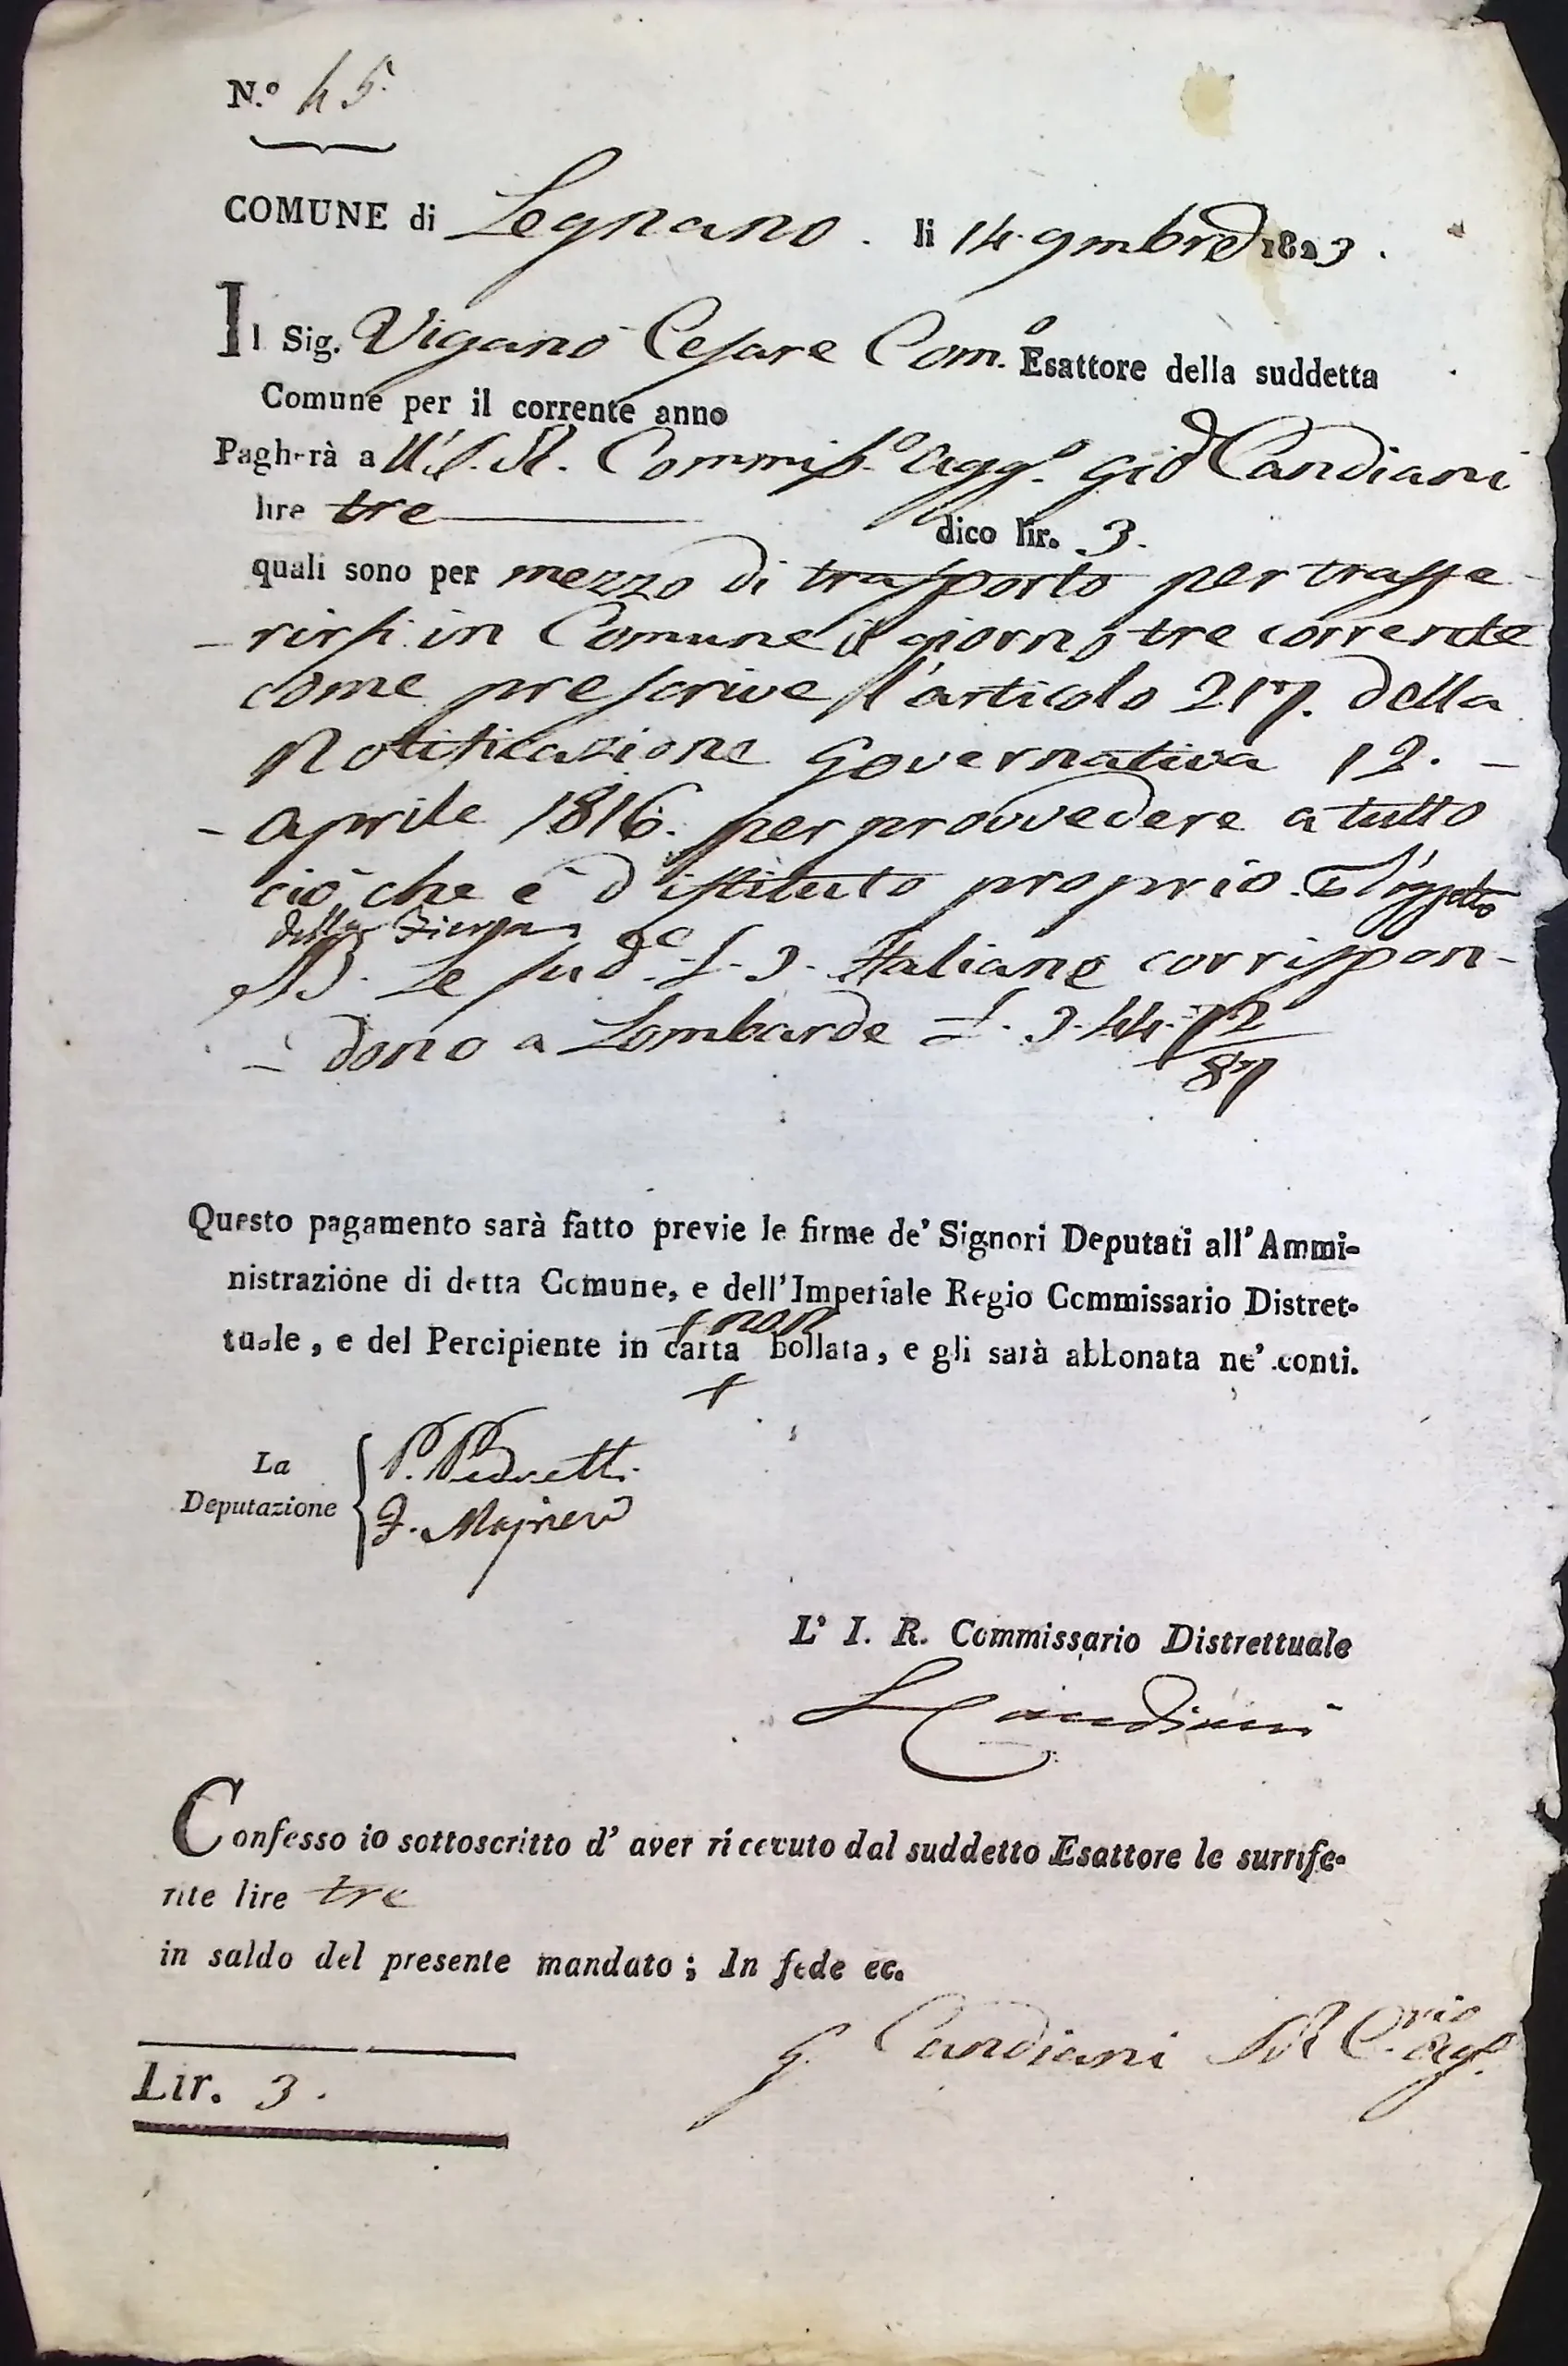 N.º 45.
COMUNE di Legnano. li 14. 9mbre 1823.
Il Sig. Viganò Cesare Com.º Esattore della suddetta
Comune per il corrente anno
Pagherà all'I. R. Commiss.º Agg.º Gio Candiani
lire tre dico lir. 3.
quali sono per mezzo di trasporto per trasfe-
-rirsi in Comune il giorno tre corrente
come prescrive l'articolo 217. della
Notificazione Governativa 12. -
- Aprile 1816. per provvedere a tutto
ciò che è d'istituto proprio. E l'oggetto
della
NB. Le sud.e £. 3. Italiane corrispon-
- dono a Lombarde £. 3.44.72/87
Questo pagamento sarà fatto previe le firme de' Signori Deputati all' Ammi-
nistrazione di detta Comune, e dell' Imperiale Regio Commissario Distret-
+ non
tuale, e del Percipiente in carta bollata, e gli sarà abbonata ne' conti.
+
La Deputazione
P. Pedretti
F. Majneri
L' I. R. Commissario Distrettuale
Candiani
Confesso io sottoscritto d' aver ricevuto dal suddetto Esattore le surrife-
rite lire tre
in saldo del presente mandato; In fede ec.
G. Candiani IR C.rio Agg.
Lir. 3.